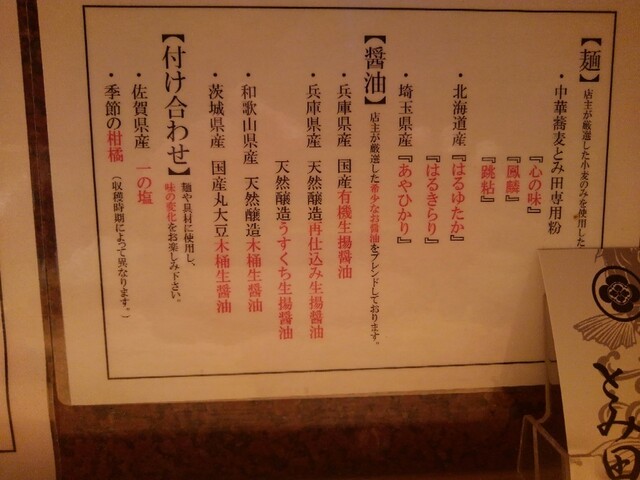 【麺】店主が厳選した小麦のみを使用した
・中華蕎麦とみ田専用粉
『心の味』
『鳳麟』
『跳粘』
・北海道産『はるゆたか』
『はるきらり』
・埼玉県産『あやひかり』
【醤油】店主が厳選した希少なお醤油をブレンドしております。
・兵庫県産 国産有機生揚醤油
・兵庫県産 天然醸造再仕込み生揚醤油
天然醸造うすくち生揚醤油
・和歌山県産 天然醸造木桶生醤油
・茨城県産 国産丸大豆木桶生醤油
【付け合わせ】麺や具材に使用し、
味の変化をお楽しみ下さい。
・佐賀県産 一の塩
・季節の柑橘（収穫時期によって異なります。）
とみ田